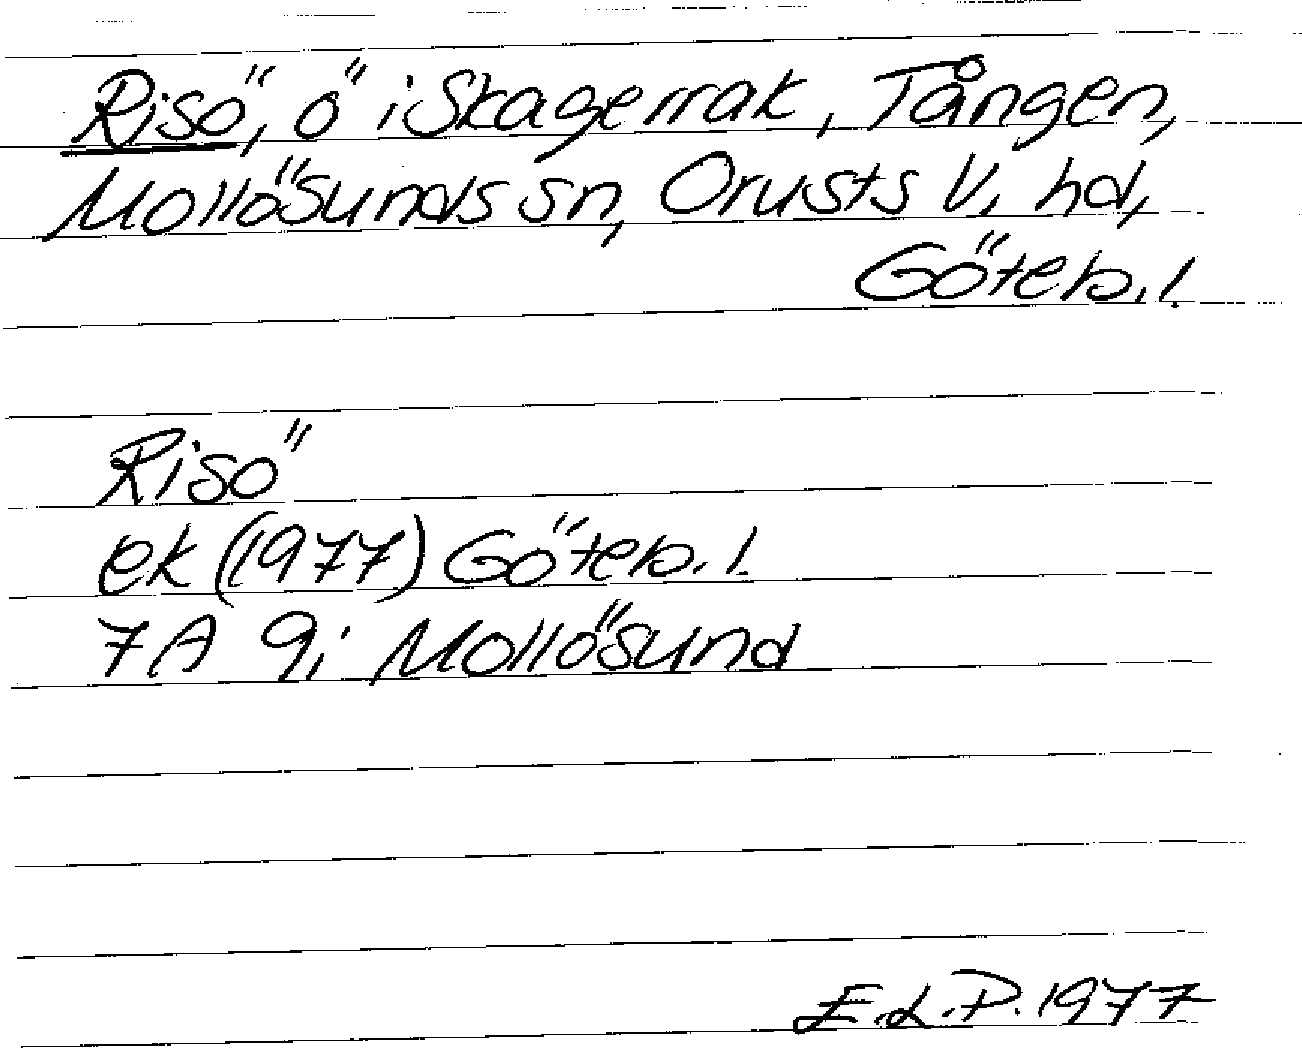 Risö, ö i Skagerrak, Tången,
Mollösunds sn, Orusts V. hd,
Göteb.l.
Risö
ek (1977) Göteb.l.
7A 9i Mollösund
E.L.P. 1977